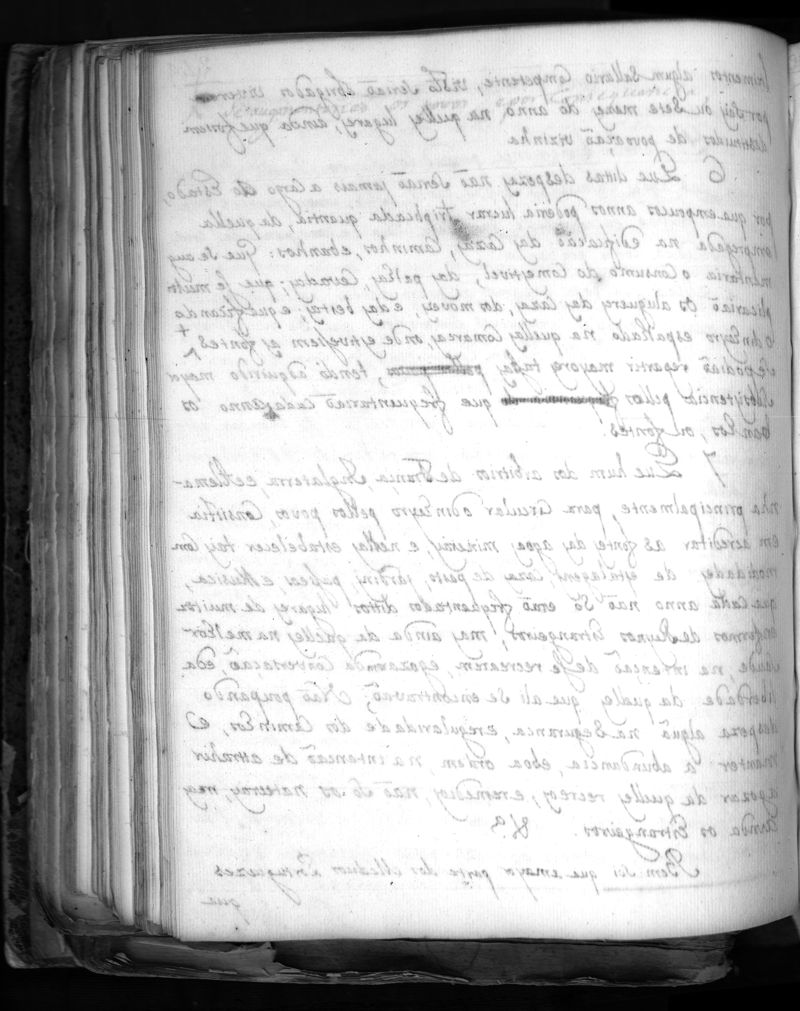 trimentos algum sallario Competente, visto serião obrigados viverem
por seis ou sete mezes do anno na quelles lugares, ainda que fossem
destituidos de povoação vizinha
6 Que ditas despezas não serião jamais a cargo do Estado,
por que em poucos annos poderia lucrar triplicada quantia, da quella
empregada na edificação das Cazas, Caminhos, e banhos: Que se aug
mentaria o Consumo do Comestivel, das palhas, Cevadas; que se multi
plicarião os alugueres das Cazas, dos moveis, e das bestas; e que ficando
o dinheyro espalhado na quellas Comarcas, onde estivessem as fontes
se podião repartir mayores taxas, tendo adquirido mayor
subsistencia pellos que frequentarião cadaanno os
banhos, ou fontes
7 Que hum dos arbitrios de França, Inglaterra, e Alema-
nha principalmente, para Circular o dinheyro pellos povos, Consistia
em acreditar as fontes das agoas mineraes, e nellas estabelecer tais Com
modidades de estalagens, Cazas de pasto, jardins, passeos, e Musica,
que cada anno não só erão frequentados dittos lugares de muitos
enfermos de Reynos Estrangeiros, mas ainda de quelles na melhor
saude, na intenção de se recrearem, e gozarem da Conversação, e da
liberdade da quelles que ali se encontravão; Não poupando
despeza algũa na segurança, e regularidade dos Caminhos, e
manter a abundancia, e boa ordem, na intenção de attrahir
a gozar da quelles recreos, e remedios, não só os naturaes, mas,
ainda os Estrangeiros. &ª
Bem sei que a mayor parte dos Medicos Portuguezes
que